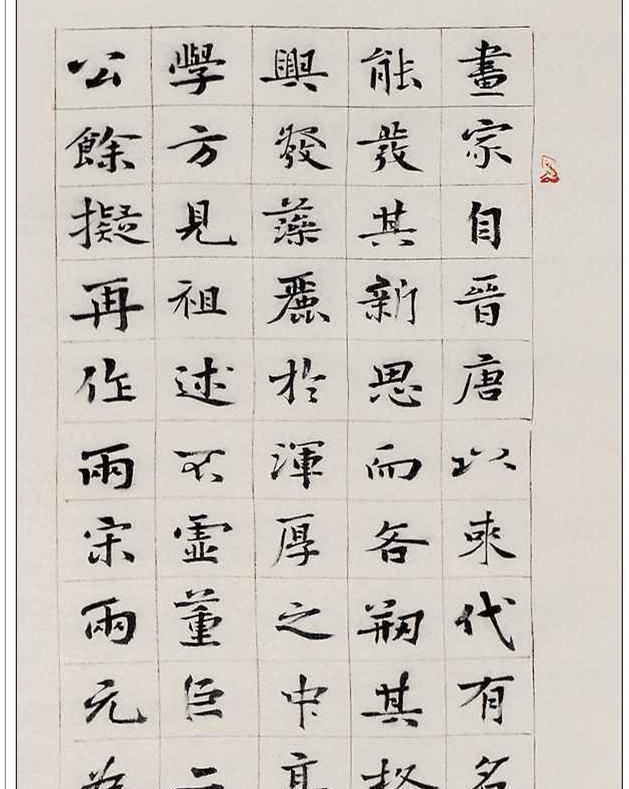 畫宗自晉唐以來代有名
能發其新思而各剏其格
興發藻麗於渾厚之中
學方見祖述不虛董巨二
公餘擬再作兩宋兩元為